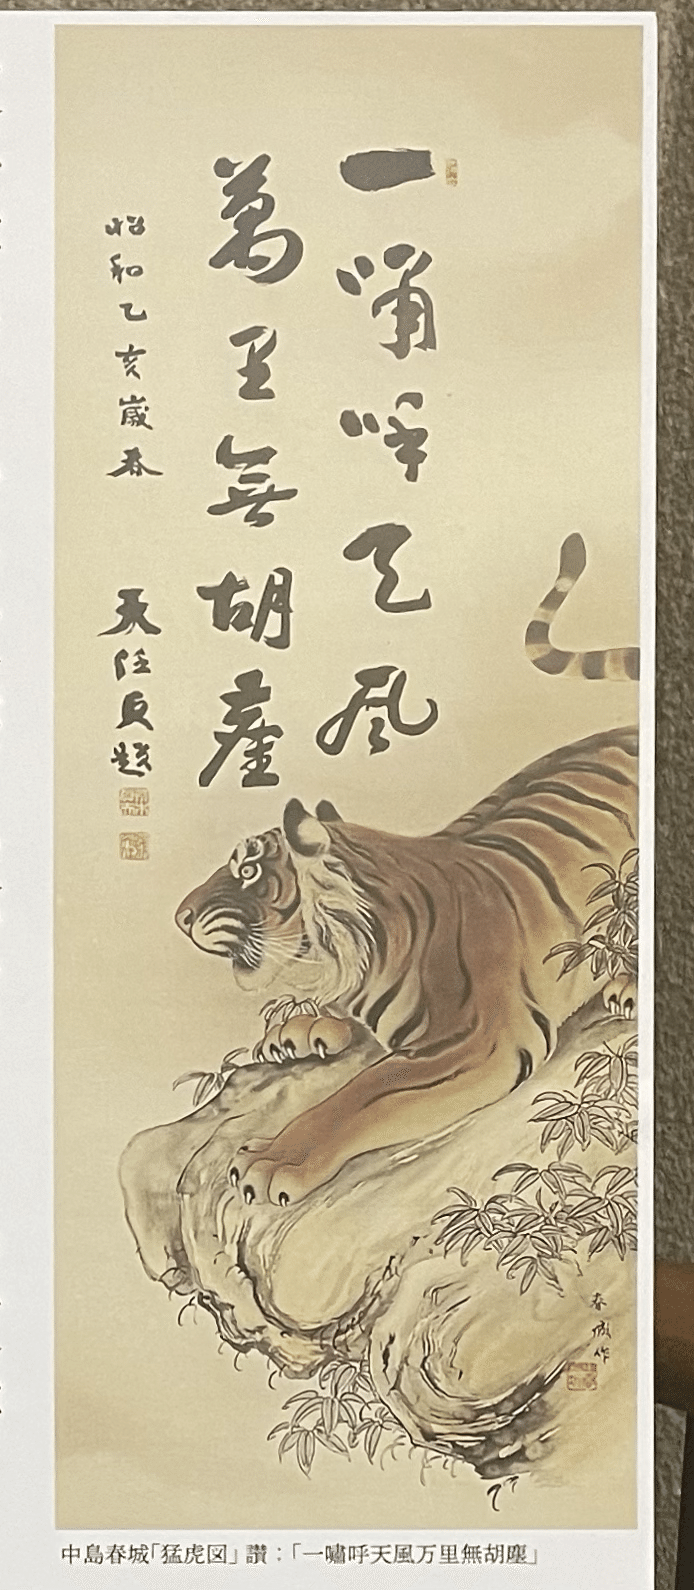 一嘯呼天風
萬里無胡塵
昭和乙亥歳春
天任居題
春城作
中島春城「猛虎図」讃：「一嘯呼天風万里無胡塵」